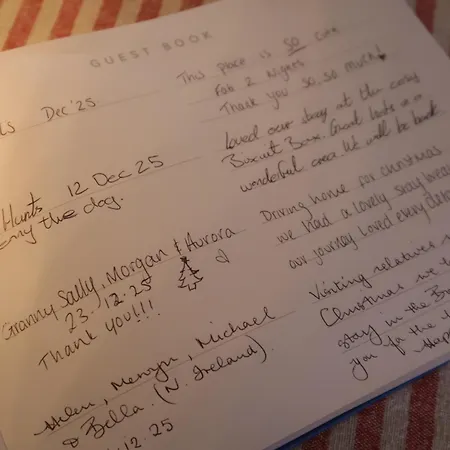 GUEST BOOK
Dec '25
This place is SO cute
for 2 nights
Thank you so, so much!
Hunts 12 Dec 25
the dog.
Loved our stay at the cosy
Biscuit Box. Great hosts in a
wonderful area. We will be back
Granny Sally, Morgan & Aurora
23.12.25
Thank you!!!
Driving home for christmas
we had a lovely stay
our journey. Loved every
Helen, Merryn, Michael
& Bella. (N. Ireland).
12.25
Visiting relatives
Christmas we
stay in the
you for the